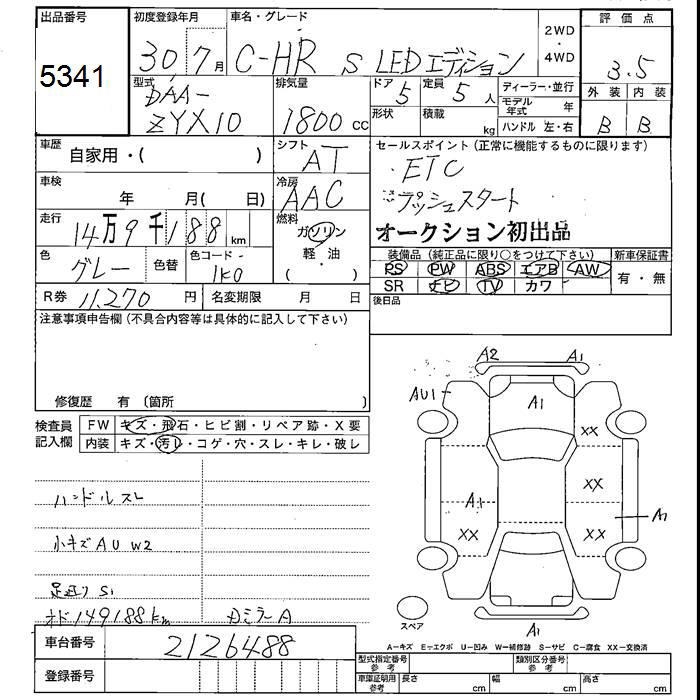 出品番号
5341
初度登録年月
30年7月
車名・グレード
C-HR S LEDエディション
2WD
・
4WD
評価点
3.5
外装 内装
B B
型式
DAA-
ZYX10
排気量
1800 cc
ドア
5
定員
5 人
形状
積載
kg
ディーラー・並行
モデル年式 年
ハンドル 左・右
車歴
自家用・( )
シフト
AT
セールスポイント (正常に機能するものに限ります)
・ETC
・プッシュスタート
オークション初出品
車検
年 月( 日)
冷房
AAC
走行
14万9千188 km
燃料
ガソリン
軽・油
( ・ )
色
グレー
色替
色コード
1K0
装備品 (純正品に限り○をつけて下さい)
PS PW ABS エアB AW
SR ナビ TV カワ
新車保証書
有・無
R券 11,270 円
名変期限 月 日
後日品
注意事項申告欄 (不具合内容等は具体的に記入して下さい)
修復歴 有 〔箇所 〕
検査員
記入欄
FW キズ・飛石・ヒビ割・リペア跡・X要
内装 キズ・汚レ・コゲ・穴・スレ・キレ・破レ
ハンドルスレ
小キズAU W2
足廻りS1
オド149188km
DミラーA
A2 A1
AU1
A1
XX
XX
A1
A1
XX XX
スペア
A1
A-キズ E-エクボ U-凹み W-補修跡 S-サビ C-腐食 XX-交換済
車台番号
2126488
登録番号
型式指定番号
参考
類別区分番号
参考
車庫証明用
参考
長さ cm
幅 cm
高さ cm